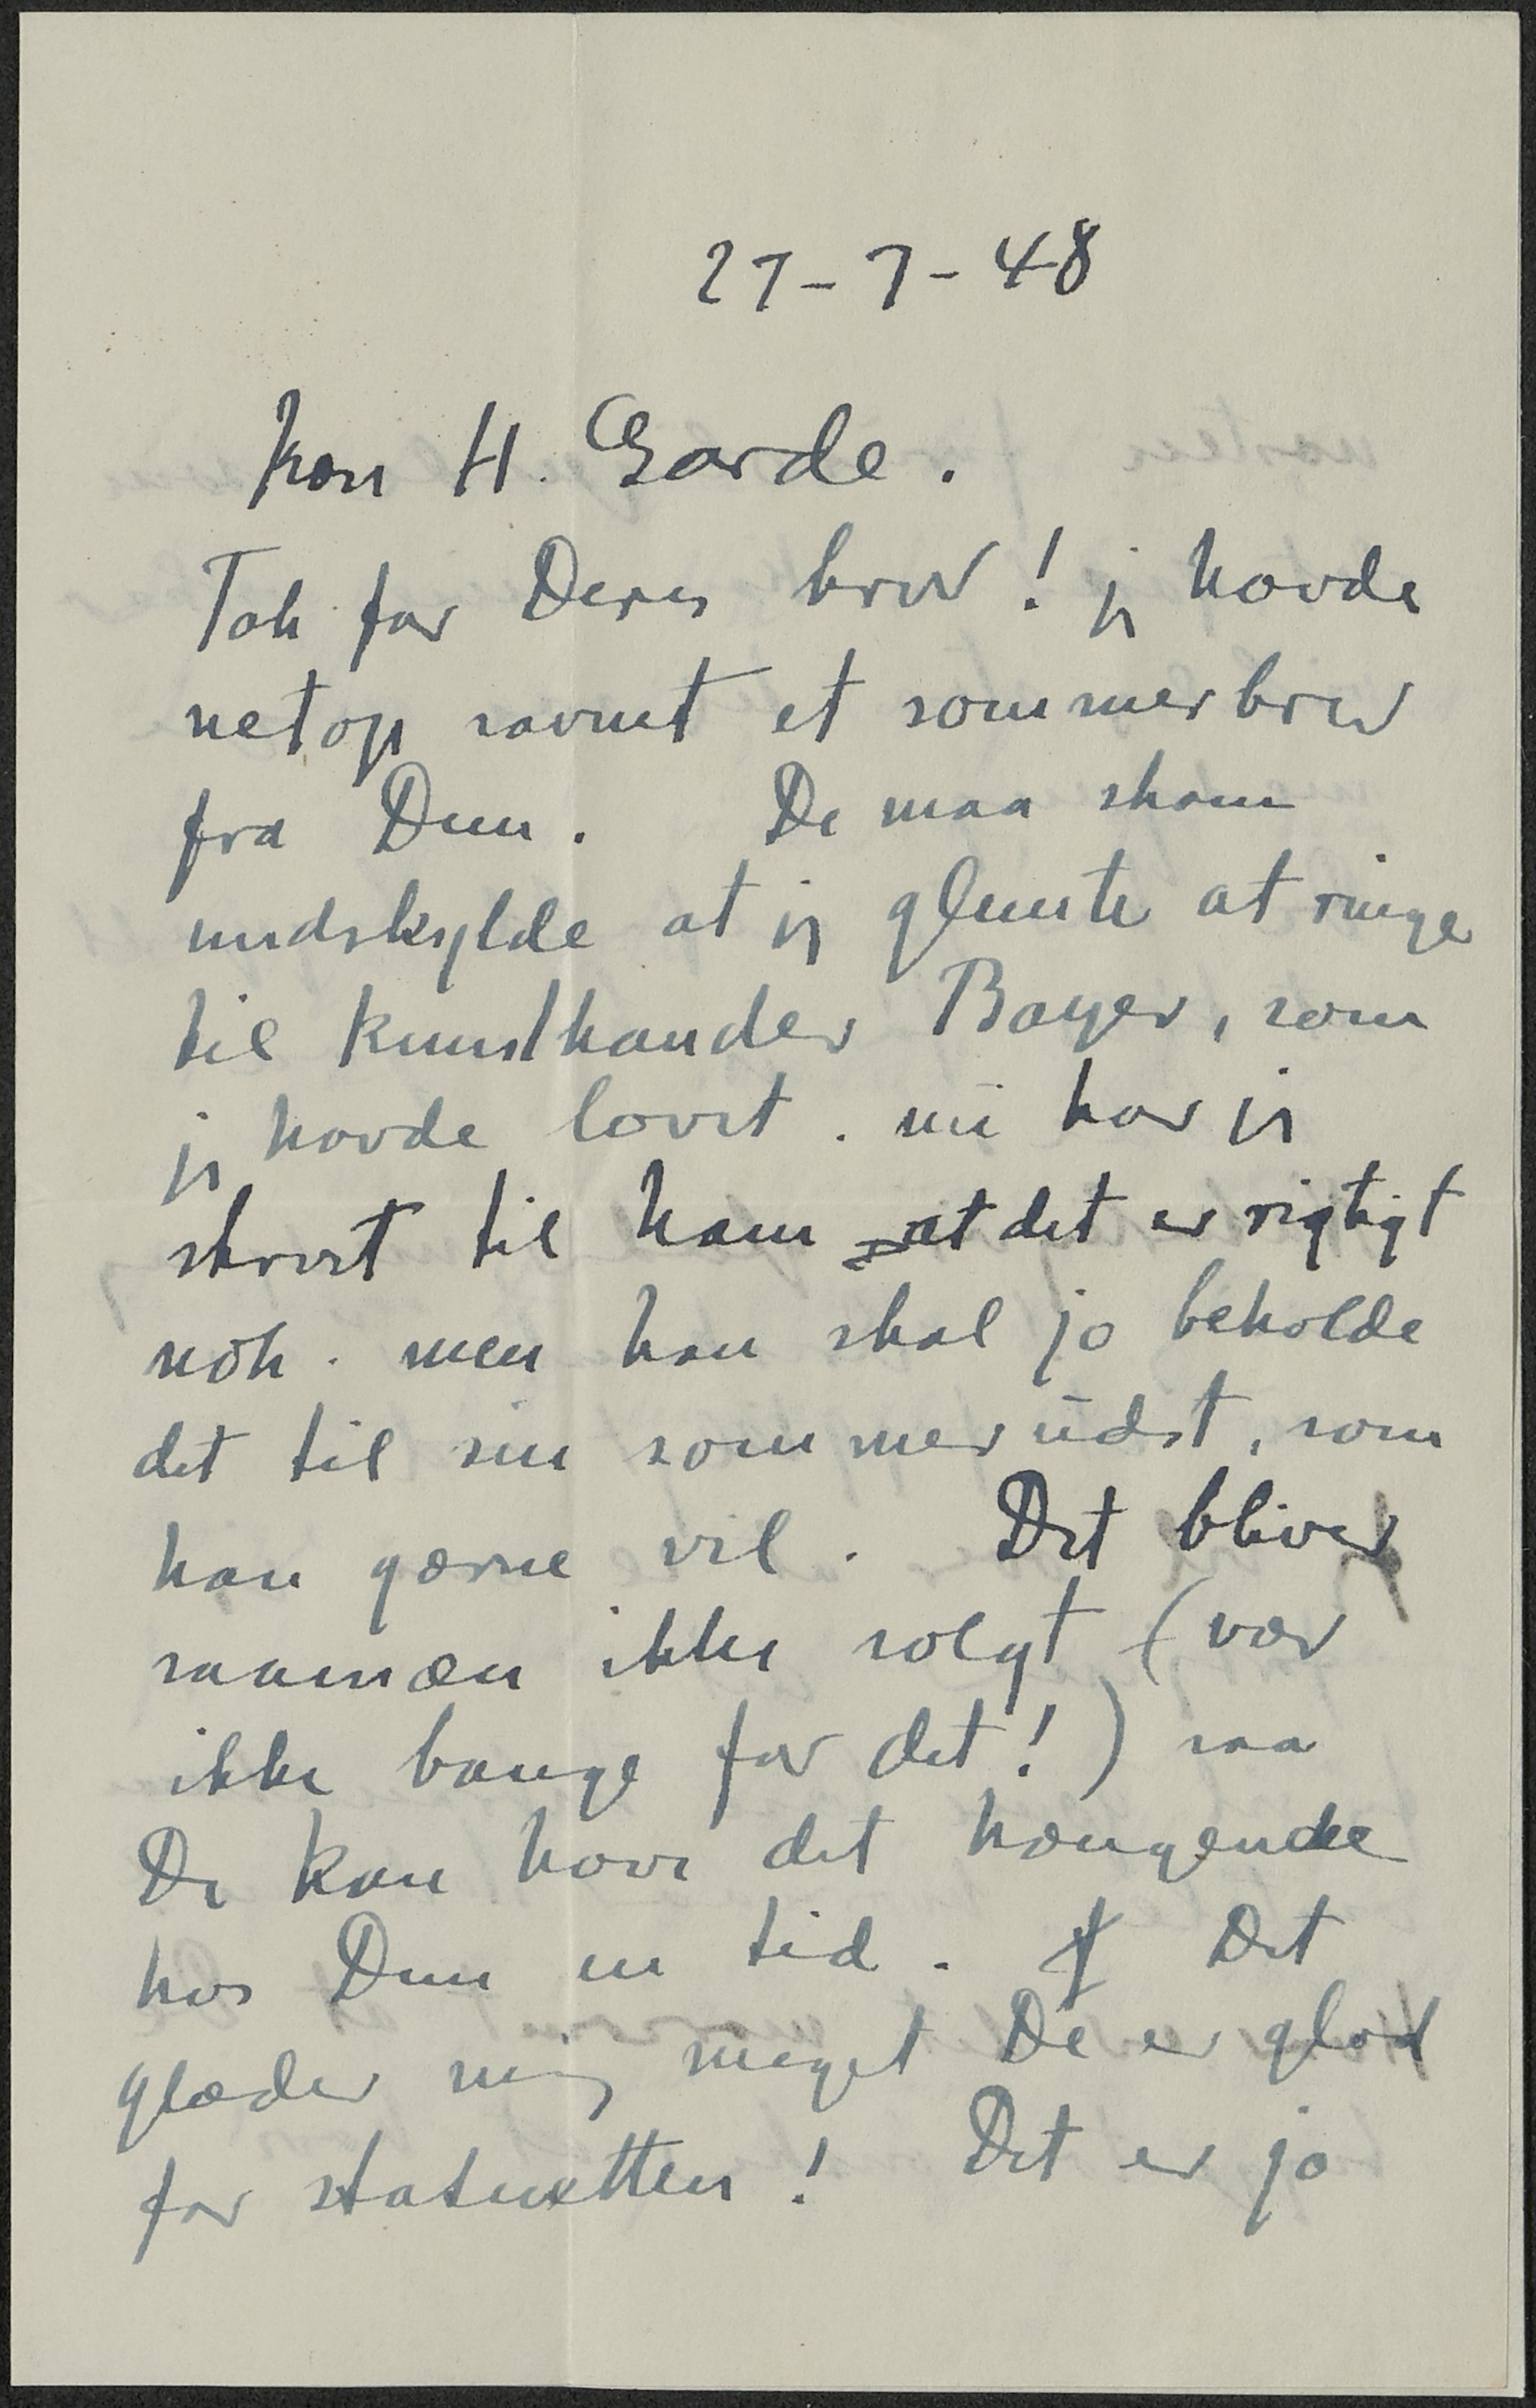 27-7-48
Kære H. Garde.
Tak for Deres brev! jeg havde
netop savnet et sommerbrev
fra Dem. De maa skam
undskylde at jeg glemte at ringe
til Kunsthandler Bayer, som
jeg havde lovet. nu har jeg
skrevet til ham at det er rigtigt
nok. men han skal jo beholde
det til sin sommerudst, som
han gærne vil. Det bliver
saamæn ikke solgt (vær
ikke bange for det!) saa
De kan have det hængende
hos Dem en tid. Det
glæder mig meget De er glad
for statuetten! Det er jo